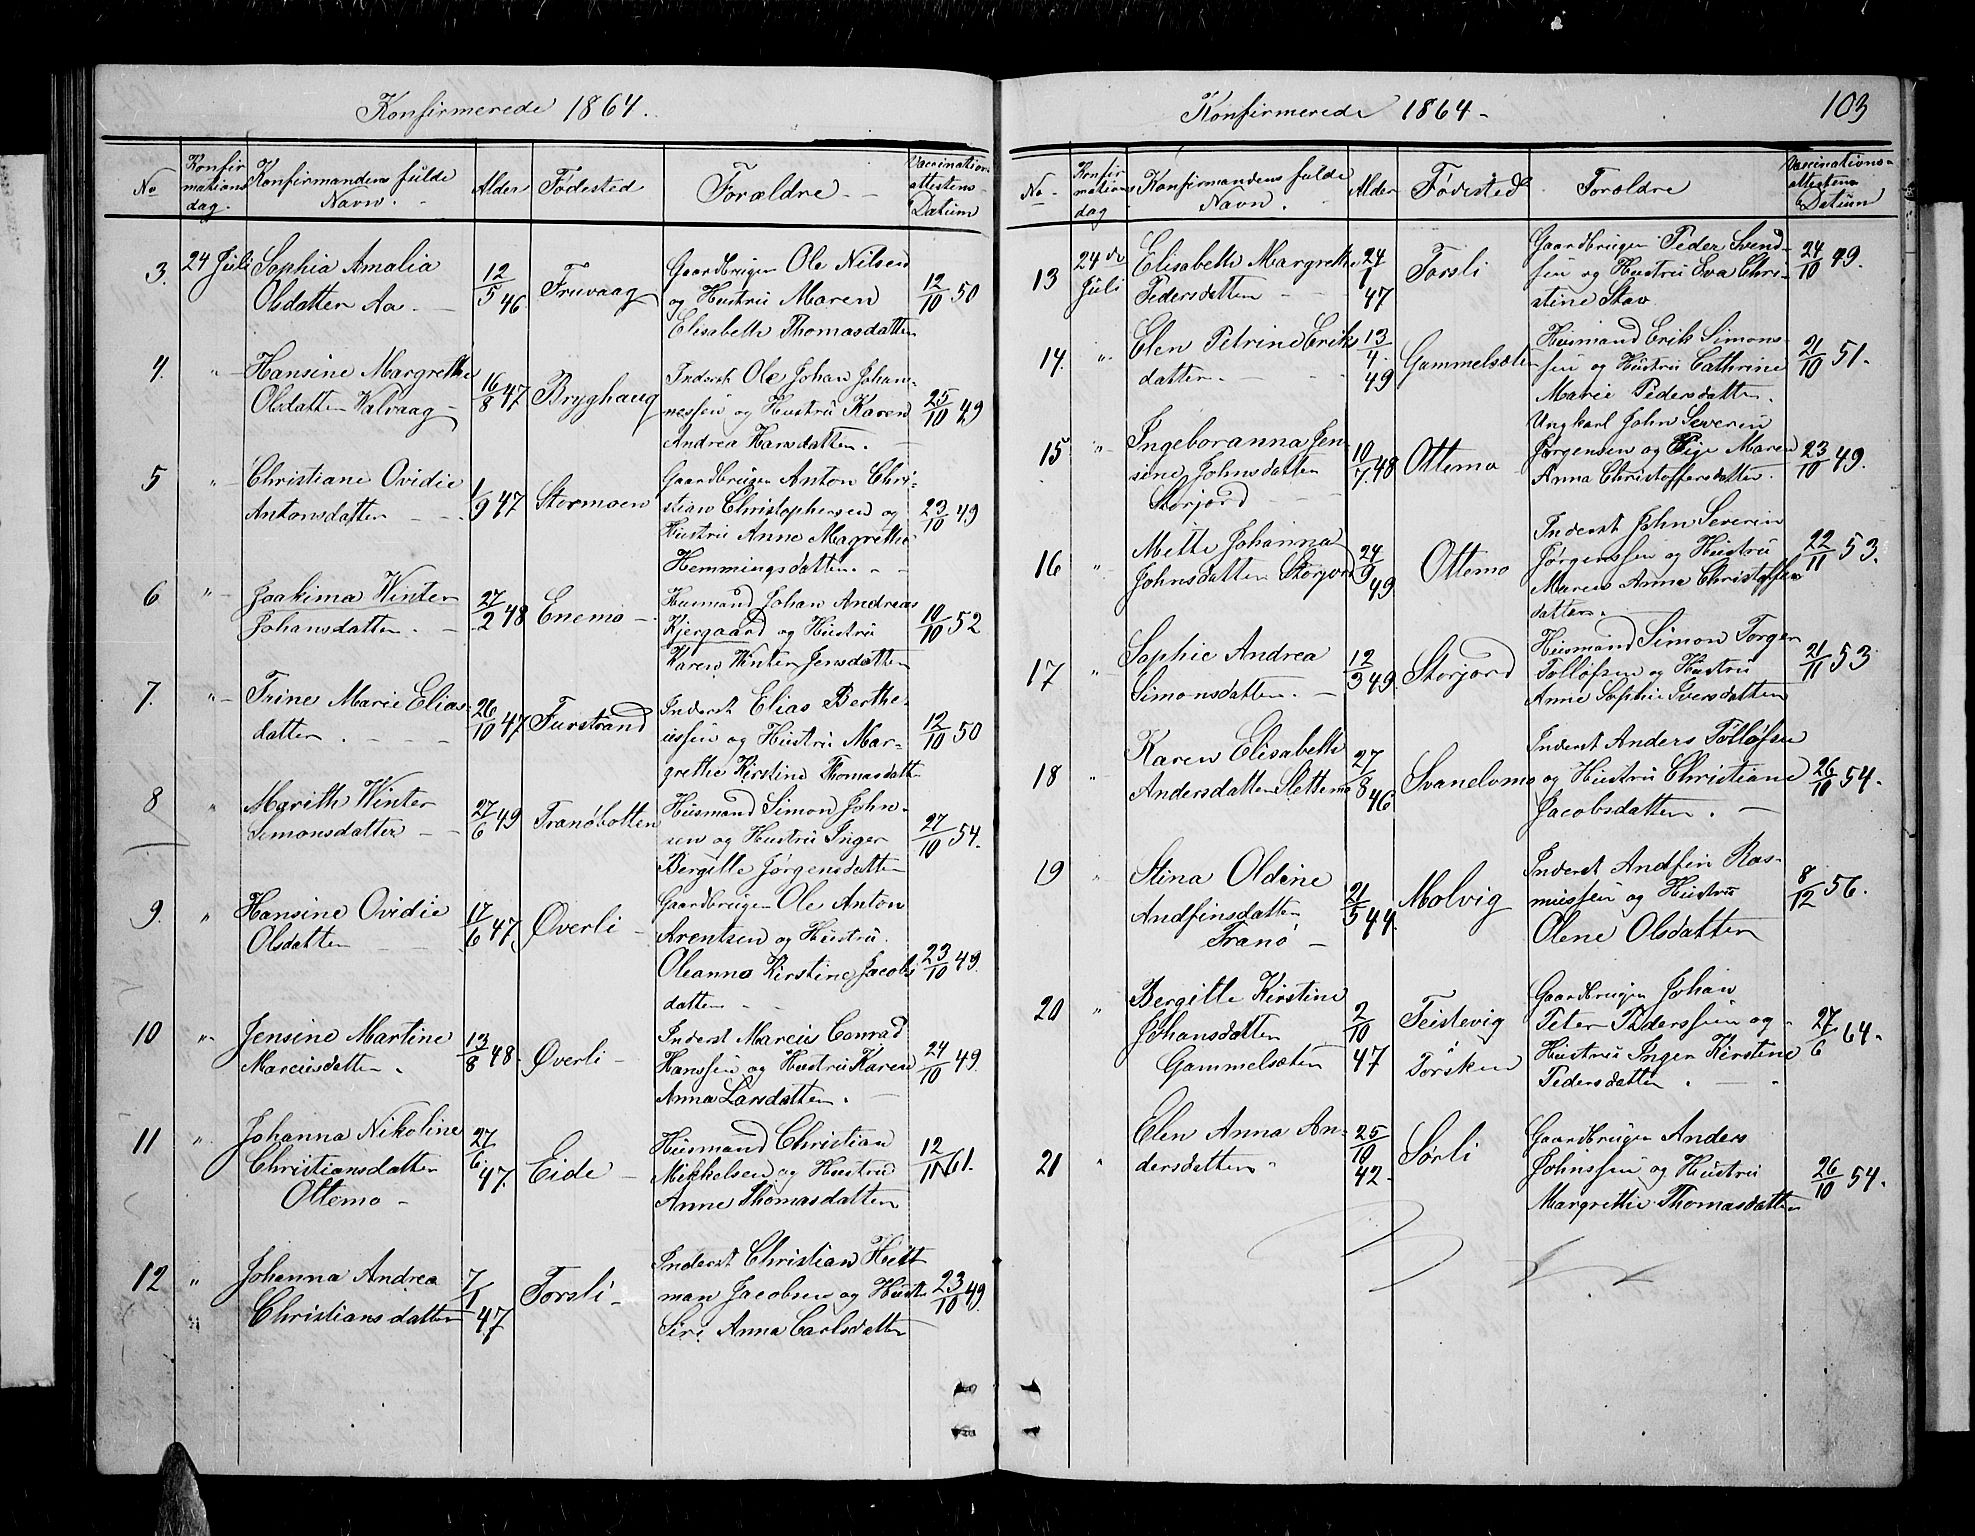 Konfirmerede 1864.
No
Konfir
mations
dag.
Konfirmandens fulde
Navn.
Alder
Fødested
Forældre
Vaccinations
attestens
Datum
3. 24 Juli Sophia Amalia
Olsdatter Aa. 12/5 46 Fruvaag
Gaardbruger Ole Nilsen
og Hustru Maren
Elisabeth Thomasdatter
12/10 50
4. " Hansine Margrethe
Olsdatter Valvaag 16/8 47 Bryghaug
Inderst Ole Johan Johan-
nessen og Hustru Karen
Andrea Hansdatter.
25/10 49
5 " Christiane Ovidie
Antonsdatter 1/9 47 Stormoen
Gaardbruger Anton Chri-
stian Christophersen og
Hustru Anne Magrethe
Hemmingsdatter.
23/10 49
6 " Joakima Winter
Johansdatter. 27/2 48 Enemo
Husmand Johan Andreas
Kjergaard og Hustru
Karen Winter Jensdatter
10/10 52
7. " Trine Marie Elias-
datter. 26/10 47 Furstrand
Inderst Elias Berthe-
ussen og Hustru Mar-
grethe Kirstine Thomasdatt
12/10 50
8 " Marith Winter
Simonsdatter 27/6 49 Tranøbotten
Husmand Simon John-
sen og Hustru Inger
Bergitte Jørgensdatter
27/10 54.
9. " Hansine Ovidie
Olsdatter 17/6 47. Øverli
Gaardbruger Ole Anton
Arentsen og Hustru
Oleanna Kirstine Jacobs
datter
23/10 49.
10 " Jensine Martine
Marcusdatter. 13/8 48. Øverli
Inderst Marcus Conrad
Hanssen og Hustru Karen
Anna Larsdatter.
24/10 49.
11 " Johanna Nikoline
Christiansdatter
Ottemo 27/6 47. Eide
Husmand Christian
Mikkelsen og Hustru
Anne Thomasdatter
12/11 61.
12 " Johanna Andrea
Christiansdatter 7/1 47 Torsli
Inderst Christian Heit
man Jacobsen og Hustr
Siri Anna Carlsdatter
23/10 49.
Konfirmerede 1864
103
No
Konfir
mations
dag
Konfirmandens fulde
Navn.
Alder
Fødested
Forældre
Vaccinations-
attestens
Datum
13 24de
Juli Elisabeth Margrethe
Pedersdatter 24/1 47 Torsli
Gaardbruger Peder Svend-
sen og Hustru Eva Chri-
stine Stav
24/10 49.
14. " Elen Petrine Eriks
datter. 13/4 49 Gammelsæter
Husmand Erik Simons-
sen og Hustru Cathrine
Marie Pedersdatter.
21/10 51.
15 " Ingeboranna Jen-
sine Johnsdatter
Storjord 10/7 48 Ottemo
Ungkarl John Severin
Jørgensen og Pige Maren
Anna Christoffersdatter.
23/10 49.
16 " Mette Johanna
Johnsdatter Storjord 24/9 49 Ottemo
Inderst John Severin
Jørgenssen og Hustru
Maren Anna Christoffer
datter.
22/11 53.
17 " Sophie Andrea
Simonsdatter. 12/3 49. Storjord
Husmand Simon Torger
Tolløfsen og Hustru
Anne Sophie Iversdatter
21/11 53
18 " Karen Elisabeth
Andersdatter Slettemo 27/8 46 Svanelvmo
Inderst Anders Tolløfsen
og Hustru Christiane
Jacobsdatter.
26/10 54.
19 " Stina Oldine
Andfinsdatter
Tranø 21/5 44. Molvig
Inderst Andfin Ras-
mussen og Hustru
Olene Olsdatter
8/12 56.
20 " Bergitte Kirstine
Johansdatter
Gammelsæter 2/10 47 Teistevig
Torsken
Gaardbruger Johan
Peter Pederssen og
Hustru Inger Kirstine
Pedersdatter.
27/6 64.
21 " Elen Anna An-
dersdatter 25/10 42. Sørli
Gaardbruger Anders
Johnssen og Hustru
Margrethe Thomasdatter
26/10 54.